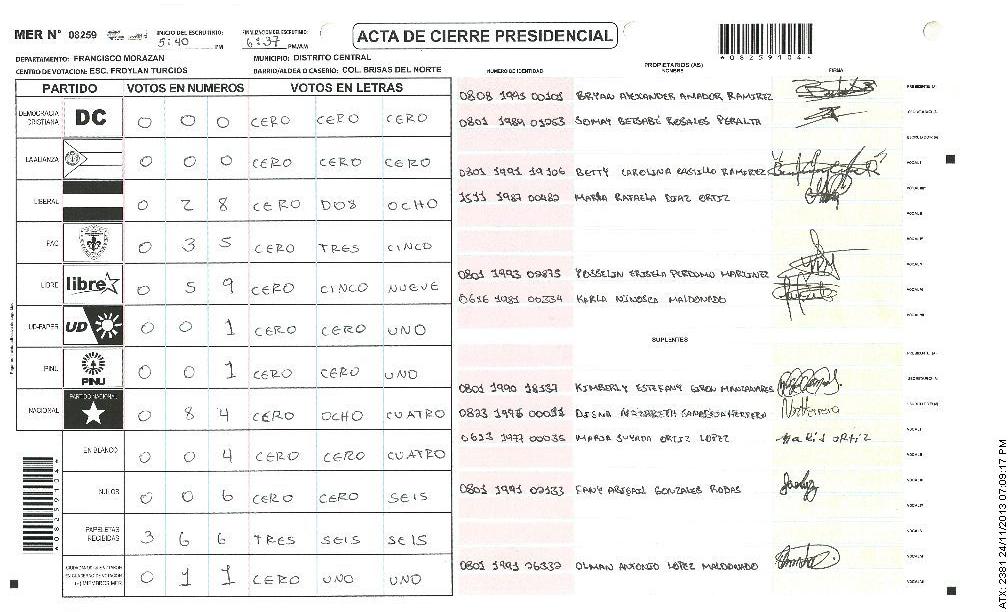 MER N° 08259
INICIO DEL ESCRUTINIO: 5:40 PM
FINALIZACION DEL ESCRUTINIO: 6:37 PM/AM
ACTA DE CIERRE PRESIDENCIAL
*082591044*
DEPARTAMENTO: FRANCISCO MORAZAN
MUNICIPIO: DISTRITO CENTRAL
CENTRO DE VOTACION: ESC. FROYLAN TURCIOS
BARRIO/ALDEA O CASERIO: COL. BRISAS DEL NORTE
NUMERO DE IDENTIDAD
PROPIETARIOS (AS)
NOMBRE
FIRMA
PARTIDO VOTOS EN NUMEROS VOTOS EN LETRAS
DEMOCRACIA CRISTIANA DC 0 0 0 CERO CERO CERO
LA ALIANZA 0 0 0 CERO CERO CERO
LIBERAL 0 2 8 CERO DOS OCHO
PAC 0 3 5 CERO TRES CINCO
LIBRE libre 0 5 9 CERO CINCO NUEVE
UD-FAPER UD 0 0 1 CERO CERO UNO
PINU PINU 0 0 1 CERO CERO UNO
NACIONAL PARTIDO NACIONAL 0 8 4 CERO OCHO CUATRO
EN BLANCO 0 0 4 CERO CERO CUATRO
NULOS 0 0 6 CERO CERO SEIS
PAPELETAS RECIBIDAS 3 6 6 TRES SEIS SEIS
0 1 1 CERO UNO UNO
BRYAN ALEXANDER AMADOR RAMIREZ
0801 1989 01263 SOMAY BETSABÉ ROSALES PERALTA
0801 1991 19106 BETTY CAROLINA CASTILLO RAMIREZ
1511 1987 00482 MARIA RAFAELA DIAZ ORTIZ
0801 1993 02875 YOSSELIN PERDOMO MARTINEZ
KARLA NINOSCA MALDONADO
SUPLENTES
0801 1990 18137 KIMBERLY ESTEFANY GIRON MANZANARES
NazHerrera
MARIA ORTIZ LOPEZ
Maria ORTIZ
0801 1991 02133 FANY ABIGAIL GONZALES RODAS
0801 1991 26332 OLMAN ANTONIO LOPEZ MALDONADO
ATX: 2381 24/11/2013 07:09:17 PM